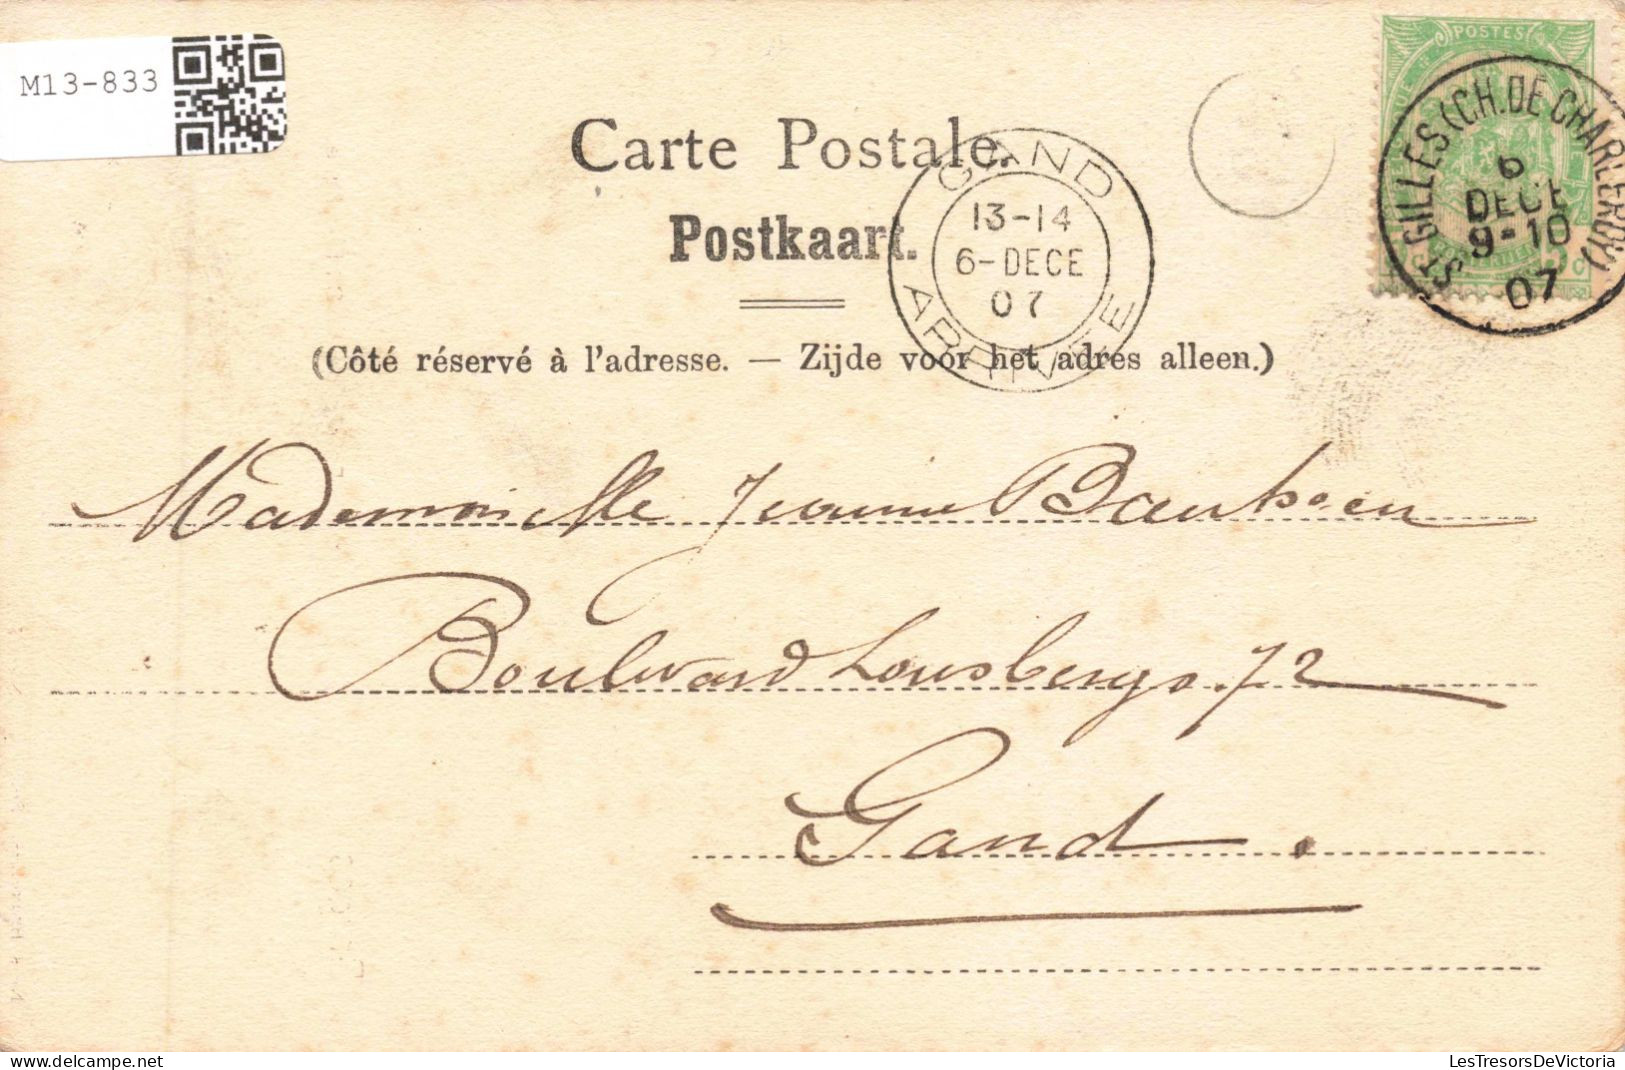 M13-833
POSTES
Carte Postale.
Postkaart.
(Côté réservé à l'adresse. — Zijde voor het adres alleen.)
GAND
13-14
6-DECE
07
ARRIVEE
ST GILLES (CH. DE CHARLEROI)
6
DECE
9-10
07
Mademoiselle Jeanne
Boulevard Lousbergs. 72
Gand.
LesTresorsDeVictoria
delcampe.net